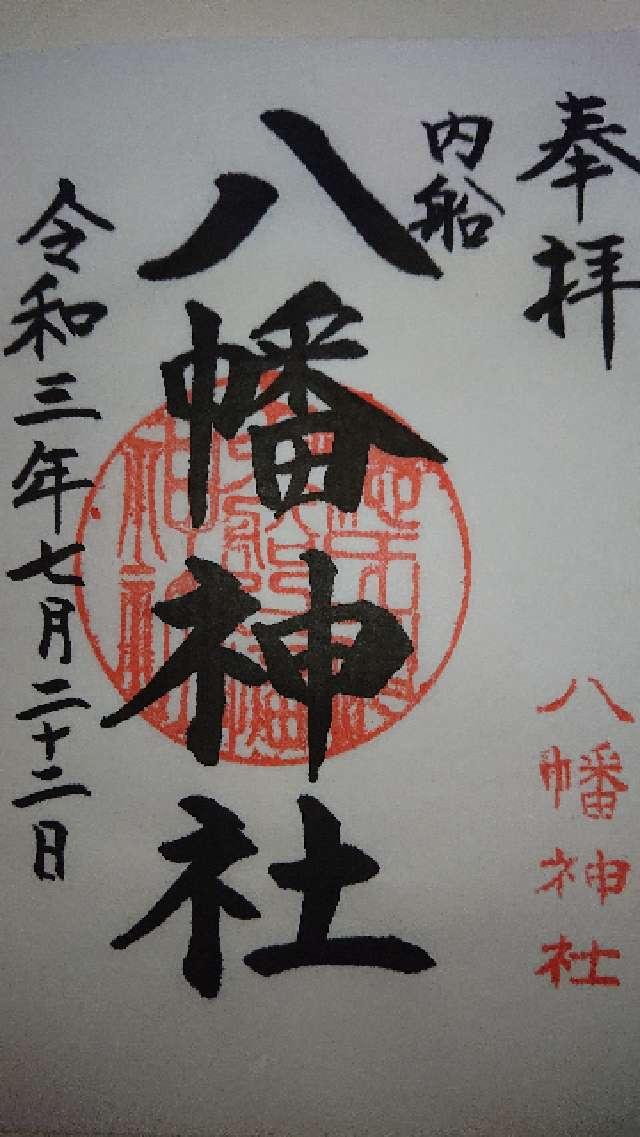 奉拝
八幡神社
内船
八幡神社
令和三年七月二十二日